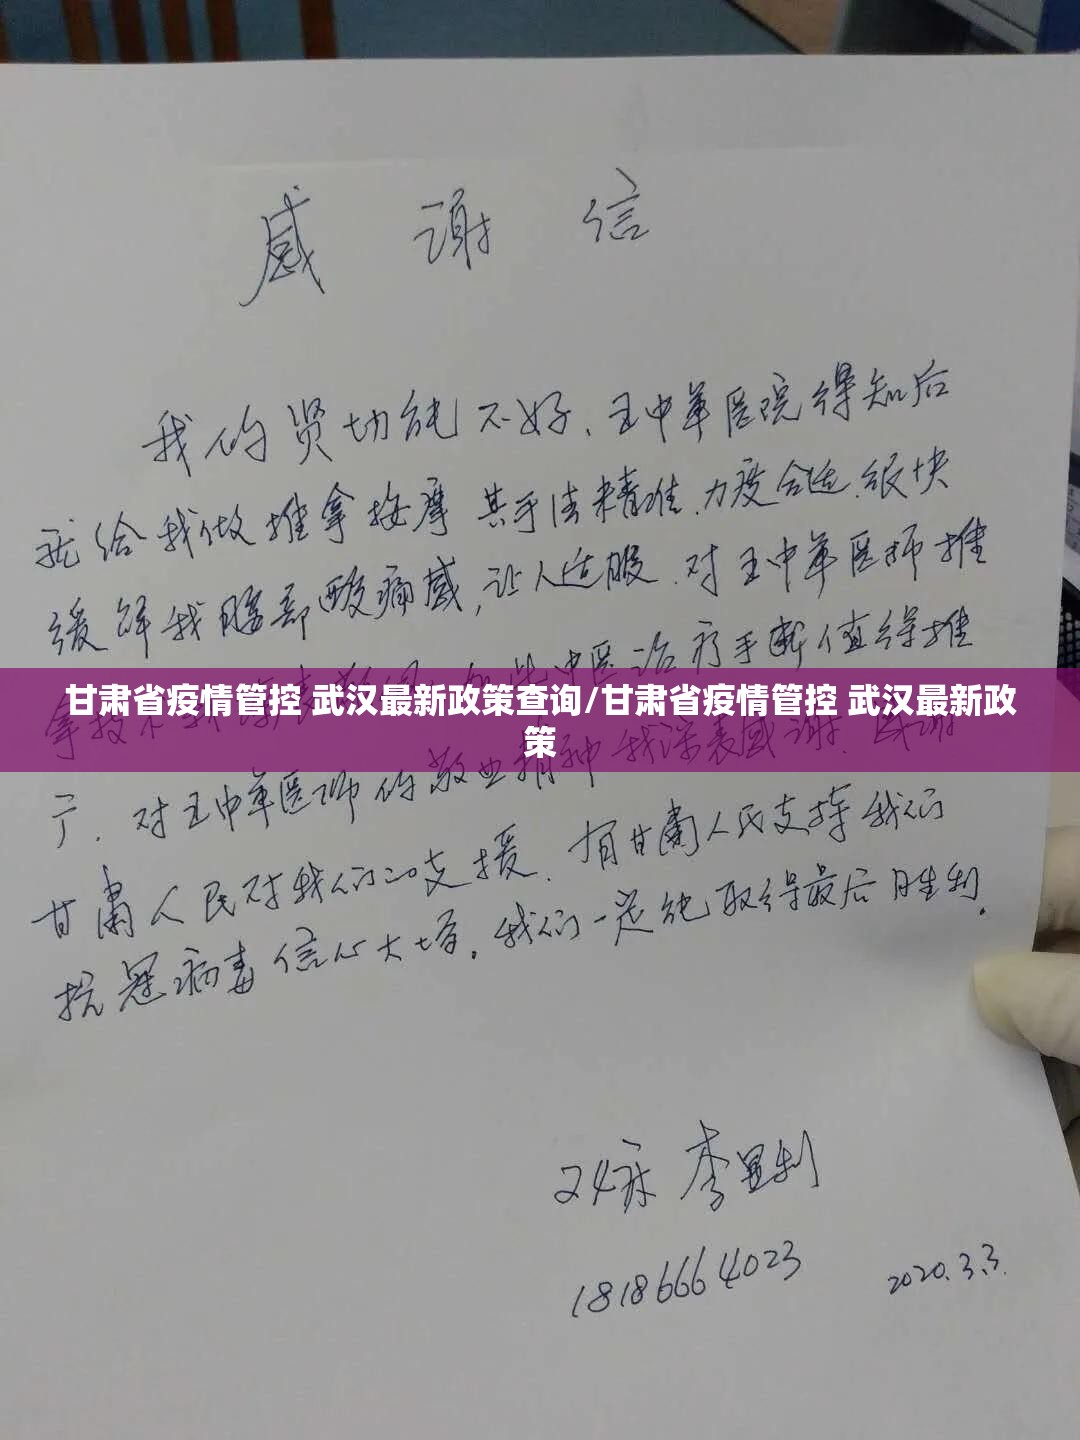 感谢信
我的贤切能不好、王中革医院得知后
就给我做推拿按摩 其手法精准.力度合适.很快
缓解我腰部酸痛感,让人适服.对王中革医师推
中医治疗手断值得推
甘肃省疫情管控 武汉最新政策查询/甘肃省疫情管控 武汉最新政
策
广.对王中革医师的敬业精神我深表感谢.感谢
甘肃人民对我们的支援.有甘肃人民支持我们
抗冠病毒信心大增.我们一定能取得最后胜利.
24床 李显利
18186664023 2020.3.3.